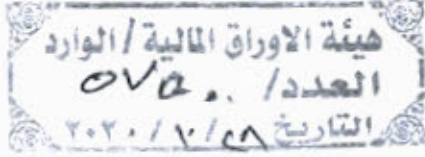 هيئة الاوراق المالية / الوارد
العدد/
التاريخ ٢٨ / ١٠ / ٢٠٢٠